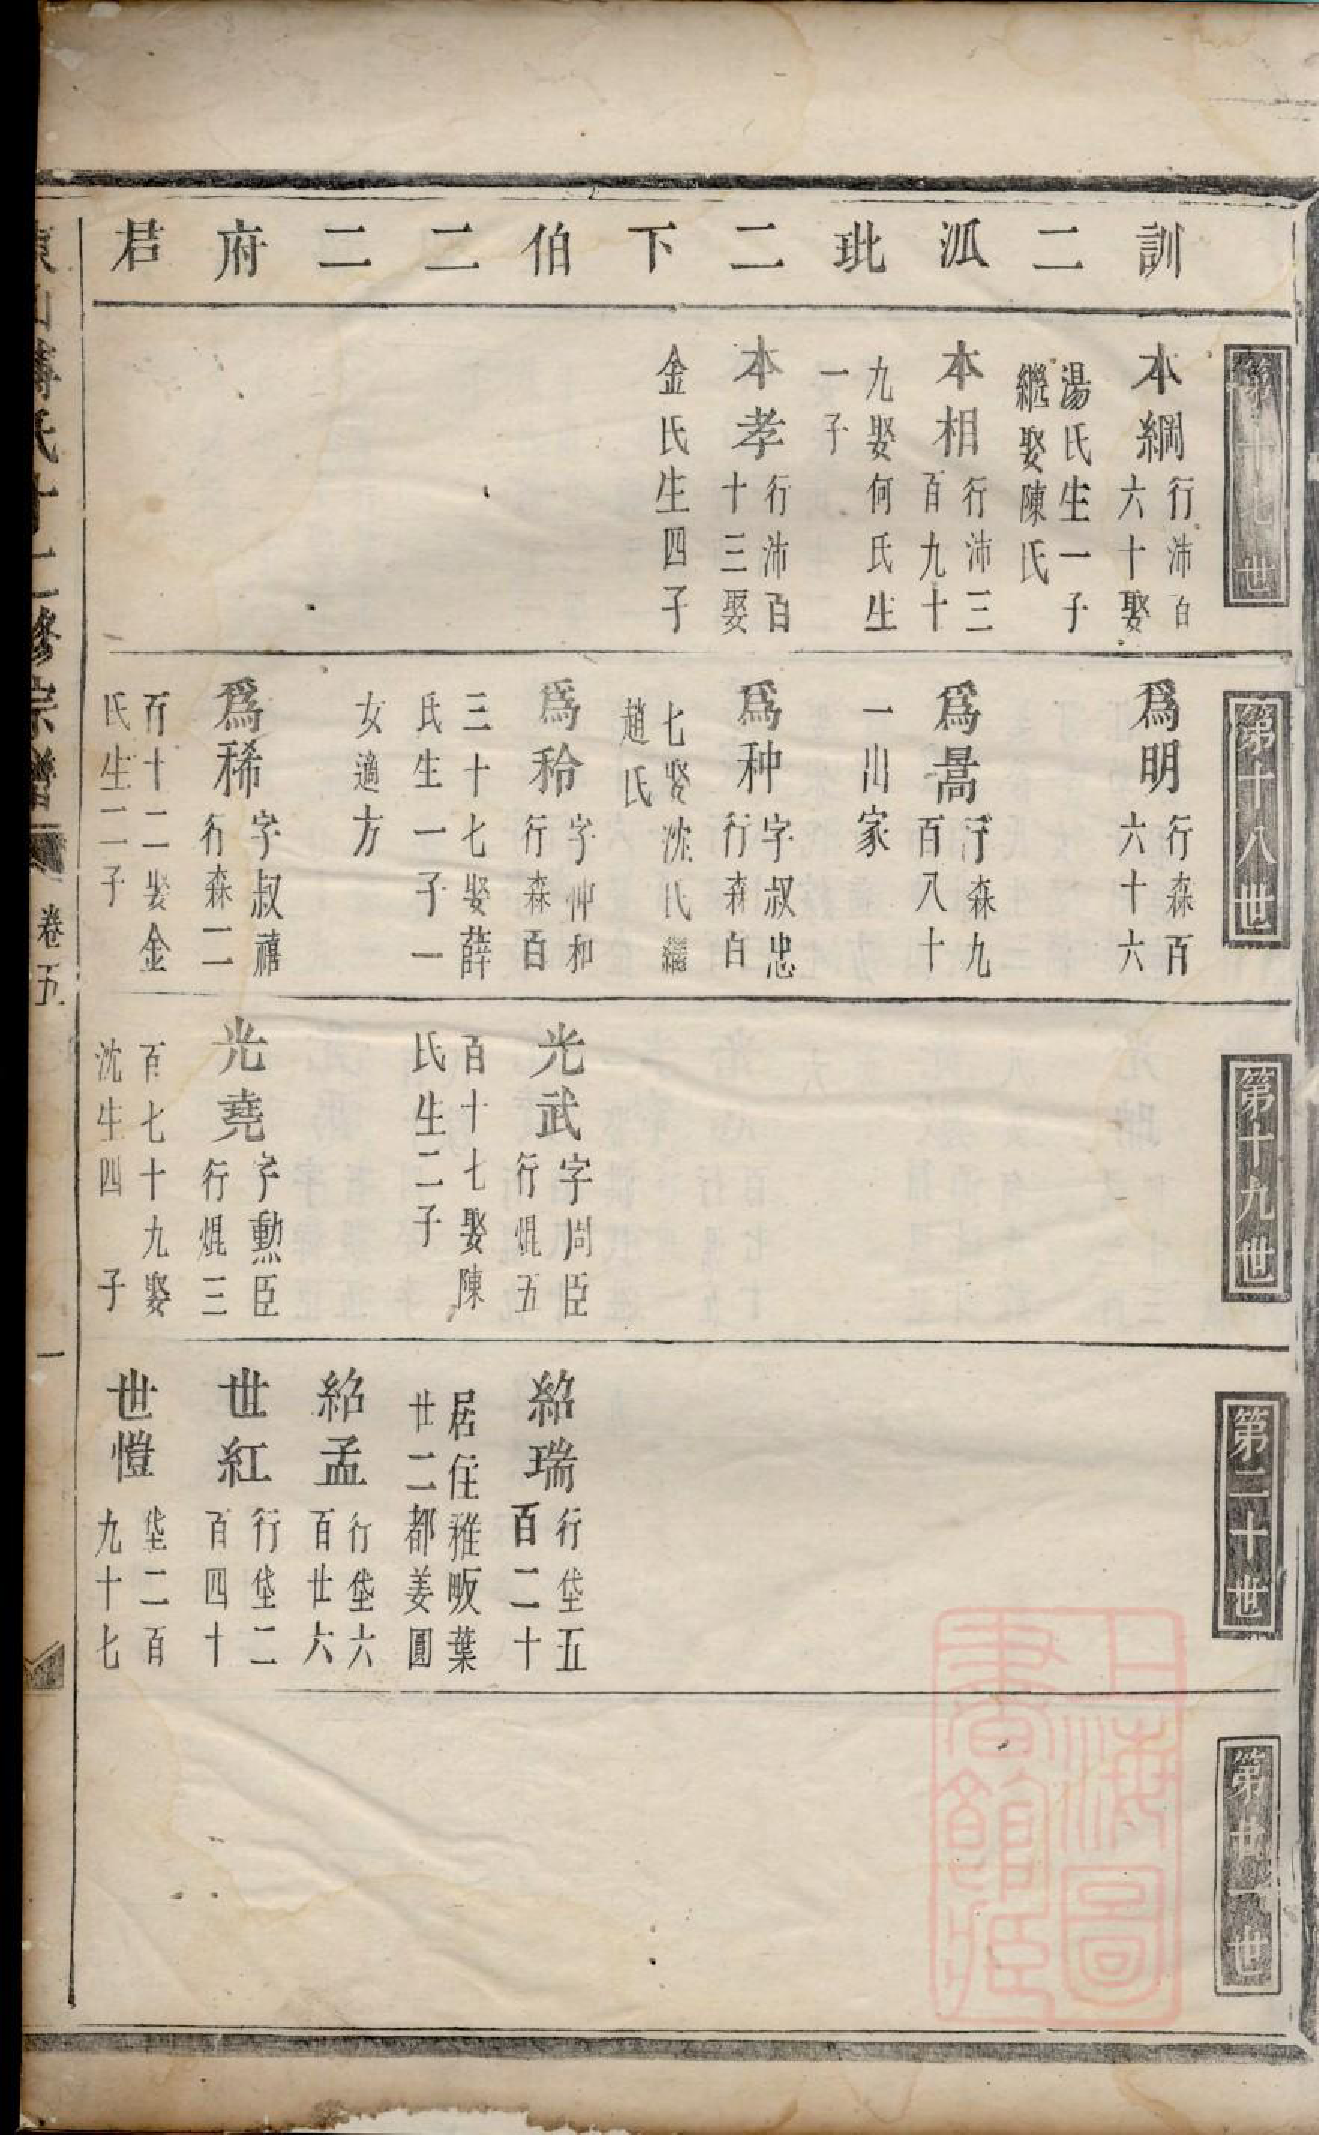 訓二派玭二下伯二二府君
第十七世
本綱行沛百六十娶
湯氏生一子
繼娶陳氏
本相行沛三百九十
九娶何氏生
一子
本孝行沛百十三娶
金氏生四子
第十八世
爲明行森百六十六
爲暠行森九百八十
一出家
爲种字叔忠行森百
七娶沈氏繼
趙氏
爲秢字仲和行森百
三十七娶薛
氏生一子一
女適方
爲稀字叔禧行森二
百十二娶金
氏生二子
第十九世
光武字周臣行焜五
百十七娶陳
氏生二子
光堯字勲臣行焜三
百七十九娶
沈生四子
第二十世
紹瑞行垡五百二十
居住雅畈葉
廿二都姜圓
紹孟行垡六百廿六
世紅行垡二百四十
世愷垡二百九十七
第廿一世
氏十二修宗譜
卷五
一
上海圖書館藏